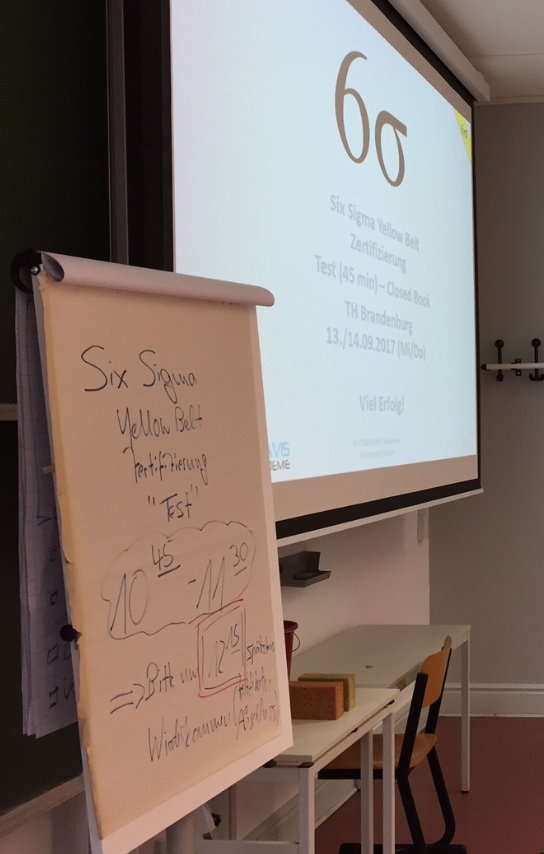 6σ
Six Sigma Yellow Belt
Zertifizierung
Test (45 min) – Closed Book
TH Brandenburg
13./14.09.2017 (Mi/Do)
Viel Erfolg!
Six Sigma
Yellow Belt
Zertifizierung
"Test"
10 45 - 11 30
⇒ Bitte um 12 15 spätestens